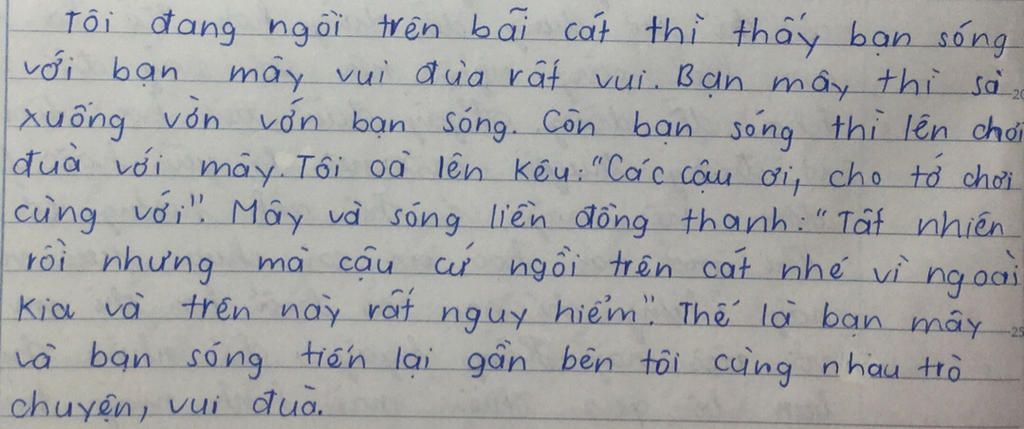 Tôi đang ngồi trên bãi cát thì thấy bạn sóng
với bạn mây vui đùa rất vui. Bạn mây thì sà
xuống vờn vớn bạn sóng. Còn bạn sóng thì lên chơi
đuà với mây. Tôi oà lên kêu: "Các cậu ơi, cho tớ chơi
cùng với". Mây và sóng liền đồng thanh: "Tất nhiên
rồi nhưng mà cậu cứ ngồi trên cát nhé vì ngoài
kia và trên này rất nguy hiểm". Thế là bạn mây
và bạn sóng tiến lại gần bên tôi cùng nhau trò
chuyện, vui đuà.